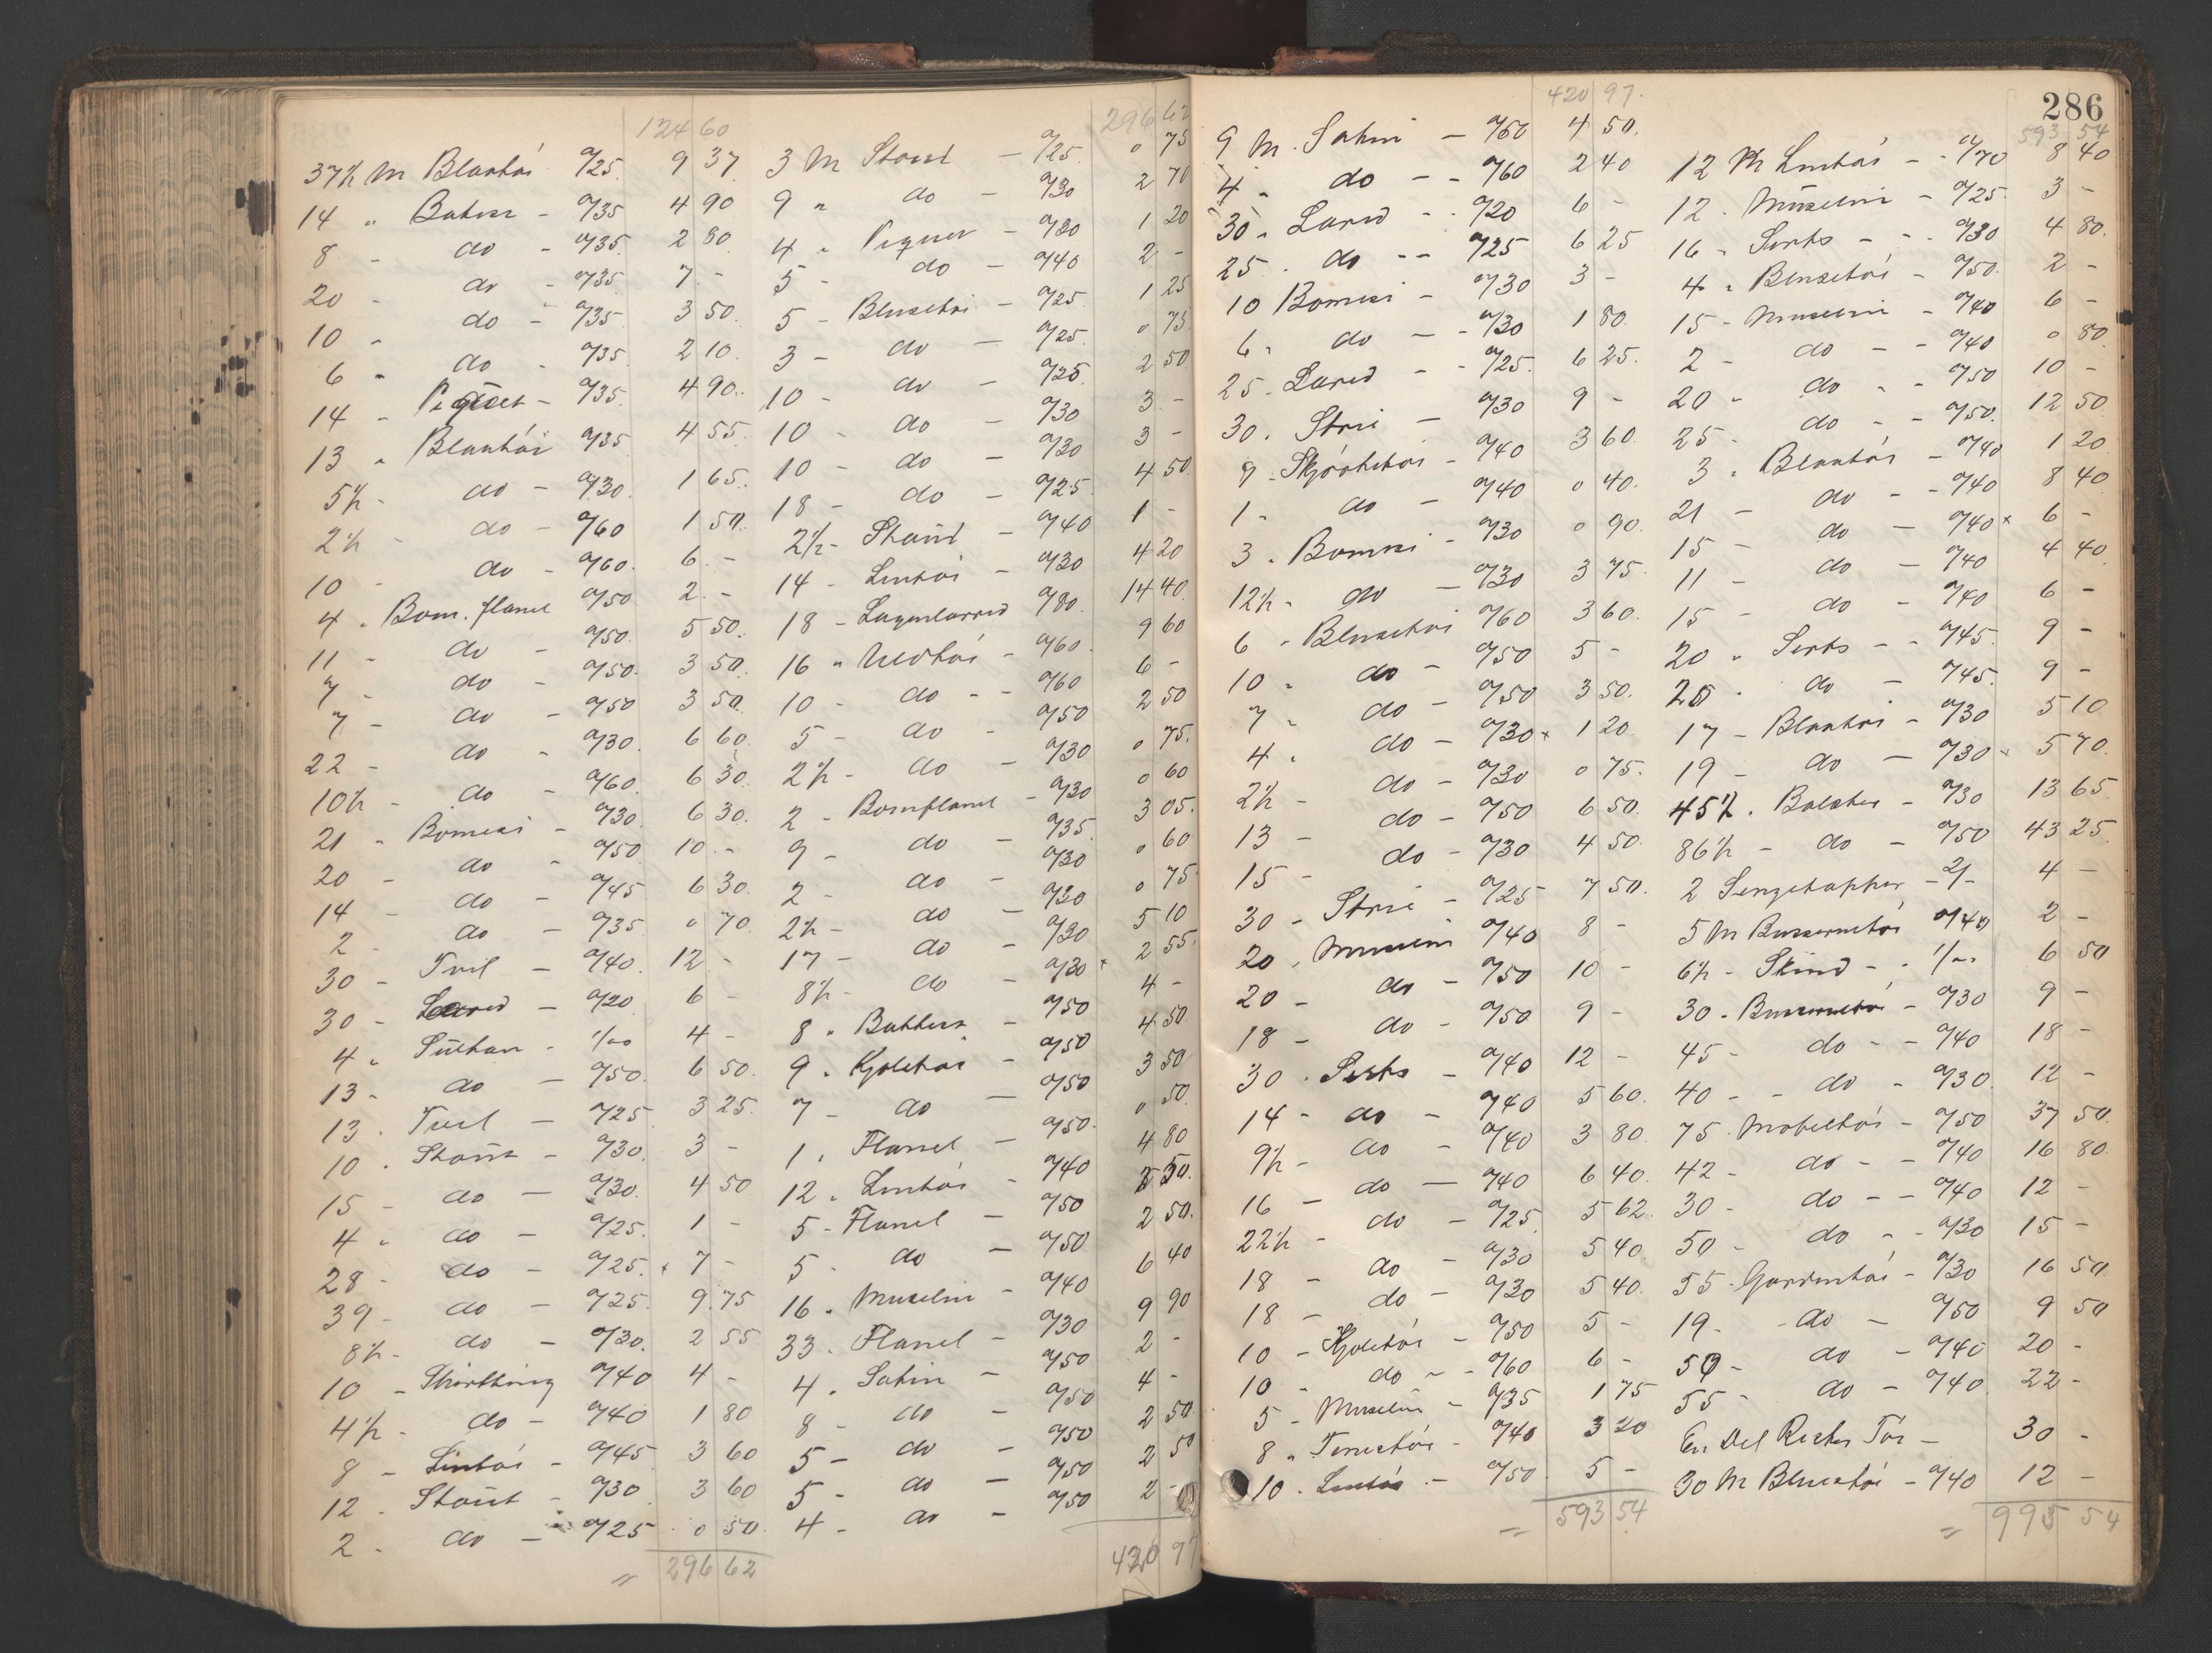 124 60
37½ M Blaatöi º/25. 9 37
14 " Batin - º/35 4 90
8 - do - º/35. 2 80.
20 - do - º/35. 7 -
10 - do - º/35 3 50.
6 - do - º/35 2 10.
14 - Piquet - º/35 4 90.
13 " Blaatöi º/35 4 55.
5½ - do - º/30. 1 65.
2½ - do - º/60 1 50.
10 - do - º/60. 6 -
4 " Bom. flanel º/50 2 -
11 - do - º/50. 5 50.
7 - do - º/50. 3 50.
7 - do - º/50 3 50.
22 - do - º/30. 6 60.
10½ - do - º/60. 6 30.
21 " Bomesi - º/30. 6 30.
20 - do - º/50 10 -
14 - do - º/45 6 30.
2 - do - º/35. 0 70.
30 - Tvil - º/40. 12 -
30 - Lærred - º/20 6 -
4 " Sultan - 1/00 4 -
13 - do - º/50. 6 50.
13 - Tvil - º/25. 3 25.
10 - Stout - º/30. 3 -
15 - do - º/30. 4 50
4 - do - º/25. 1 -
28 - do - º/25. x 7 -
39 - do - º/25. 9 75
8½ - do - º/30. 2 55.
10 - Shirthing º/40 4 -
4½ - do - º/40 1 80
8 - Lintöi - º/45 3 60
12 - Stout - º/30 3 60
2 - do - º/25 0 50.
= 296 62
296 62
3 M Stout - º/25. 0 75
9 " do - º/30 2 70
4 " Piquet - º/30 1 20
5 - do - º/40 2 -
5 - Blusetöi - º/25 1 25
3 - do - º/25. 0 75.
10 - do - º/25. 2 50
10 - do - º/30 3 -
10 - do - º/30 3 -
18 - do - º/25 4 50
2½ - Stout - º/40 1 -
14 - Lintöi - º/30 4 20
18 - Lagenlærred º/80. 14 40.
16 " Uldtöi - º/60. 9 60
10 - do - - º/60 6 -
5 - do - º/50 2 50
2½ - do - º/30 0 75.
2 - Bomflanel - º/30 0 60
9 - do - º/35. 3 05.
2 - do - º/30 0 60
2½ - do - º/30 0 75
17 - do - º/30 5 10
8½ - do - º/30 x 2 55.
8 " - º/50 4 -
9 " Kjoletöi - º/50 4 50
7 - do - º/50 3 50
1 " Flanel - º/50. 0 50.
12 " Lintöi - º/40 4 80
5 - Flanel - º/50 2 50.
5 - do - º/50 2 50.
16 " Muselin - º/40 6 40
33 - Flanel - º/30 9 90
4 " Satin - º/50 2 -
8 - do - º/50 4 -
5 - do - º/50 2 50
5 - do - º/50 2 50
4 - do - º/50 2 -
420 97
420 97.
9 M. Satin - º/50 4 50.
4 " do - - º/60 2 40
30 " Lærred - - º/20 6 -
25 " do - - º/25 6 25
10 Bomesi - º/30 3 -
6 " do - - º/30 1 80.
25 - Lærred - - º/25. 6 25.
30 " Strie - º/30 9 -
9 - Skjörtetöi - º/40 3 60.
1 - do - º/40 0 40.
3 " Bomesi - º/30 0 90.
12½ - do - º/30 3 75.
6 " Blusetöi º/60 3 60.
10 " do - º/50 5 -
7 " do - º/50 3 50.
4 " do - º/30 x 1 20
2½ - do - º/30 0 75.
13 - do - º/50 6 50.
15 - do - º/30 4 50.
30 - Strie - º/25 7 50.
20 " Muselin º/40 8 -
20 - do - º/50 10 -
18 - do - º/50 9 -
30 - Serts - º/40 12 -
14 - do - º/40 5 60.
9½ - do - º/40 3 80.
16 - do - º/40 6 40
22½ - do - º/25 5 62.
18 - do - º/30 5 40
18 - do - º/30 5 40.
10 - Kjoletöi - º/50 5 -
10 " do - - º/60 6 -
5 - Muselin - º/35 1 75
8 " Ternetöi - º/40 3 20
10 - Lintöi - º/50. 5 -
= 593 54
286
593 54
12 M Lintöi - - º/70 8 40
12 " Müselin - º/25. 3 -
16 " Serts - - º/30 4 80.
4 " Blusetöi - º/50. 2 -
15 - Muselin - º/40 6 -
2 - do - - º/40 0 80.
20 - do - - º/50 10 -
25 - do - - º/50. 12 50
3 " Blaatöi - º/40 1 20
21 - do - - º/40 8 40
15 - do - º/40 x 6 -
11 - do - º/40 4 40
15 - do - º/40 6 -
20 " Serts - - º/45. 9 -
20 - do - º/45. 9 -
17 - Blaatöi - º/30 5 10
19 - do - º/30 x 5 70
45½ " Bolster - º/30 13 65
86½ - do - º/50 43 25
2 Sengetæpper - 2/- 4 -
5 M Busserontöi º/40 2 -
6½ - Skind - - 1/00 6 50
30 - Busserontöi - º/30 9 -
45 - do - - º/40 18 -
40 - - do - º/30. 12 -
75 - Mobeltöi - º/50 37 50
42 - do - - º/40 16 80.
30 - do - - º/40 12 -
50 - do - - º/30 15 -
55 - Gardintöi - º/30 16 50
19 - do - º/50 9 50
50 - do - º/40 20 -
55 - do - º/40 22 -
En Del Rester Töi - 30 -
30 M Blusetöi - º/40 12 -
= 995 54